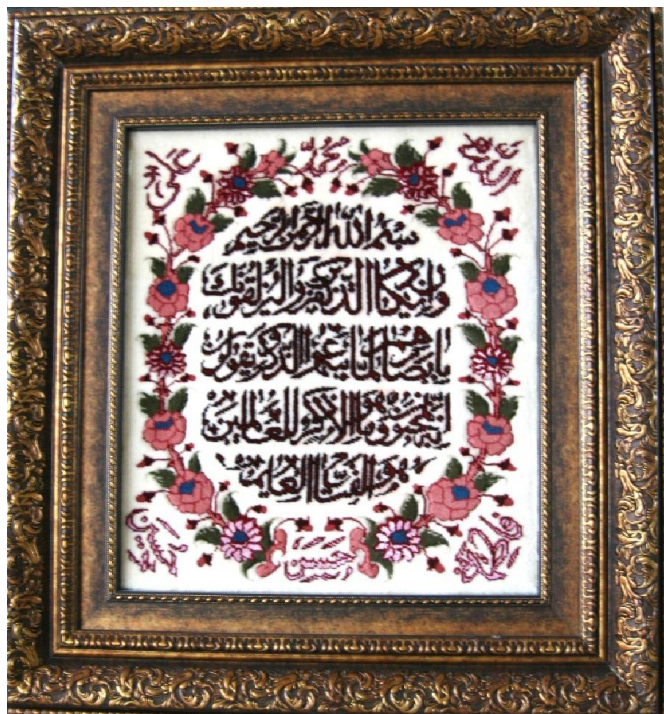 الله
محمد
علی
بسم الله الرحمن الرحيم
وان يكاد الذين كفروا ليزلقونك
بابصارهم لما سمعوا الذكر ويقولون
انه لمجنون وما هو الا ذكر للعالمين
هو الفتاح العليم
فاطمه
حسن
حسین